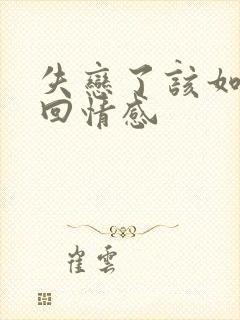 失戀了該如
回情感
崔雲